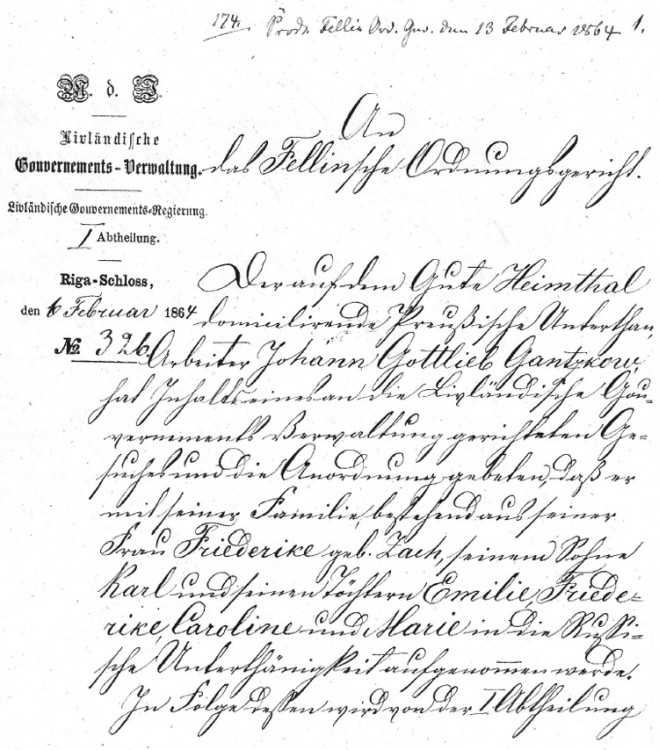 174. Prod. Fellin Ord. Ger. den 13 Februar 1864 1.
M. d. I.
Livländische
Gouvernements-Verwaltung.
Livländische Gouvernements-Regierung.
I Abtheilung.
Riga-Schloss,
den 6 Februar 1864
№ 326.
An
das Fellinsche Ordnungsgericht.
Der auf dem Gute Heimthal
domicilirende Preußische Unterthan,
Arbeiter Johann Gottlieb Gantzkow,
hat Inhalts eines an die Livländische Gou-
vernements Verwaltung gerichteten Ge-
suches um die Anordnung gebeten, daß er
mit seiner Familie, bestehend aus seiner
Frau Friederike geb. Zach, seinem Sohne
Karl und seinen Töchtern Emilie, Friede-
rike, Caroline und Marie in die Russi-
sche Unterthänigkeit aufgenommen werde.
In Folge dessen wird von der I Abtheilung